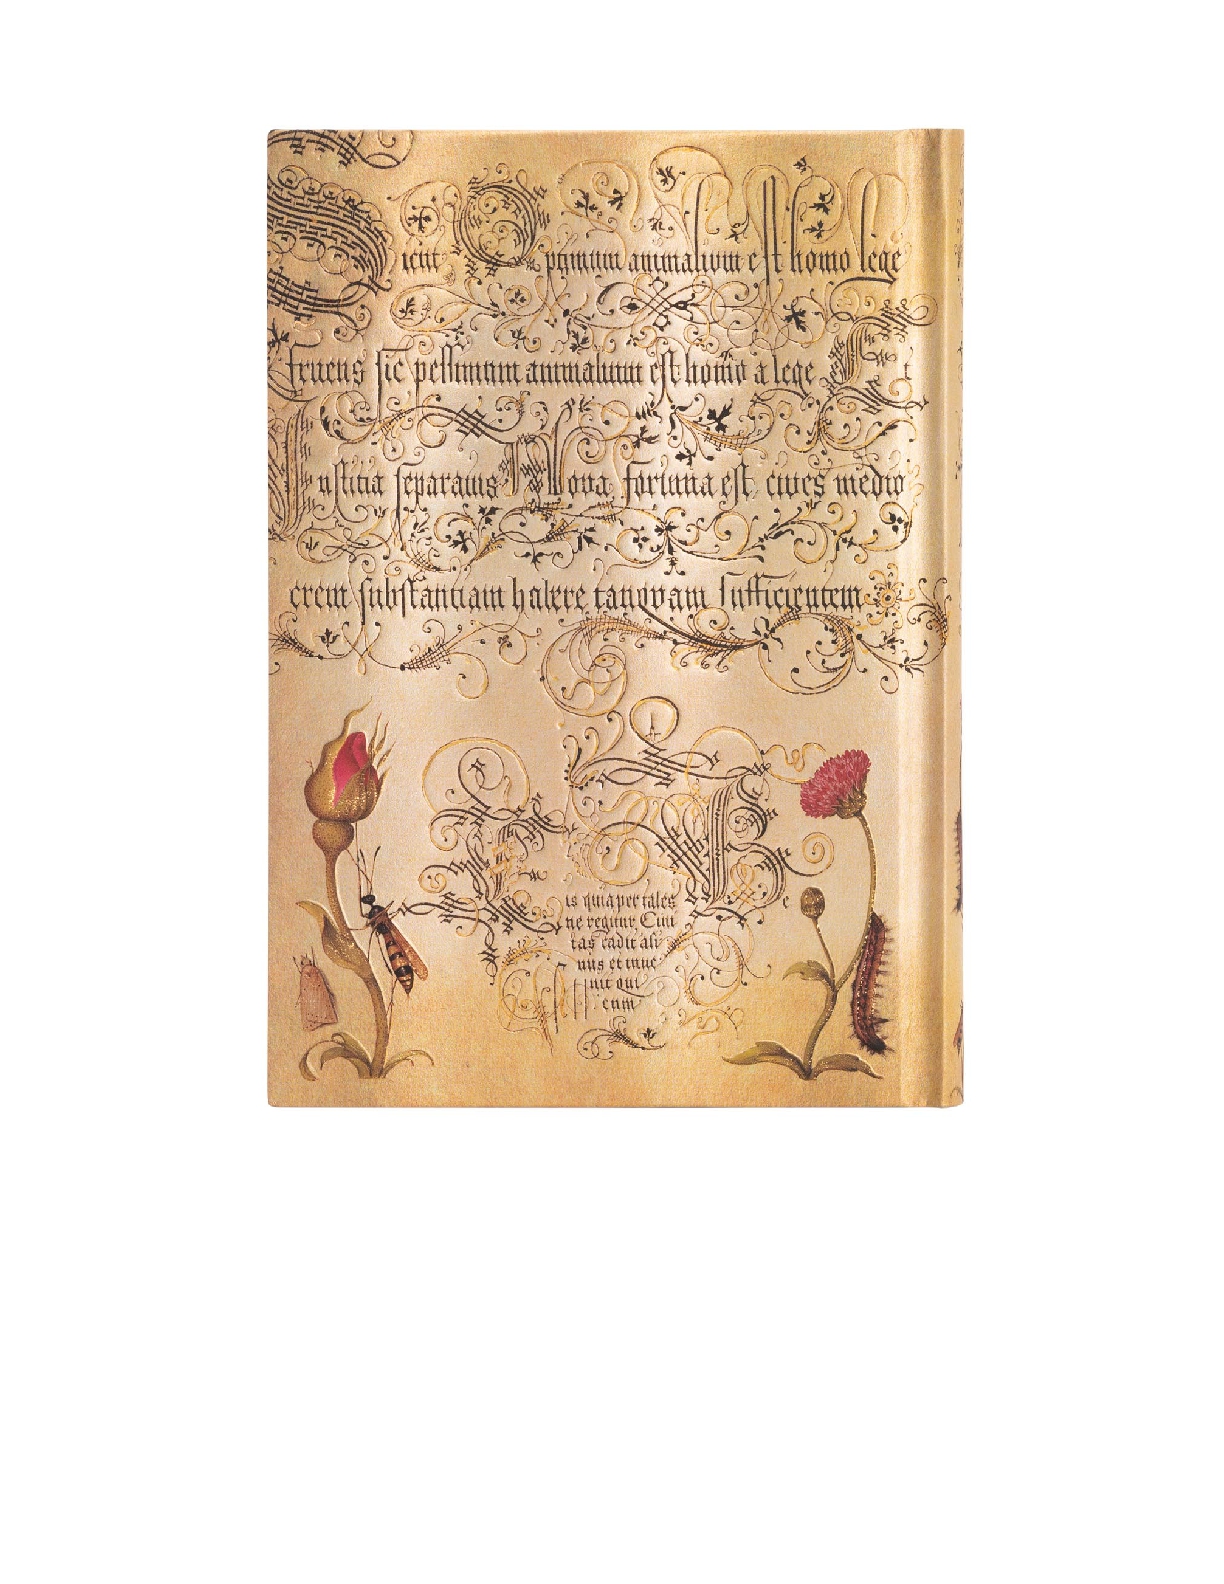 Sicut Optimum animalium est homo lege
fruens sic pessimum animalium est homo a lege Et
Iustitia separatus Bona fortuna est cives medio
crem substantiam habere tanquam sufficientem
is quia per tales
ne regitur Civi
tas cadit asi
nus et inve
nit qui
eum